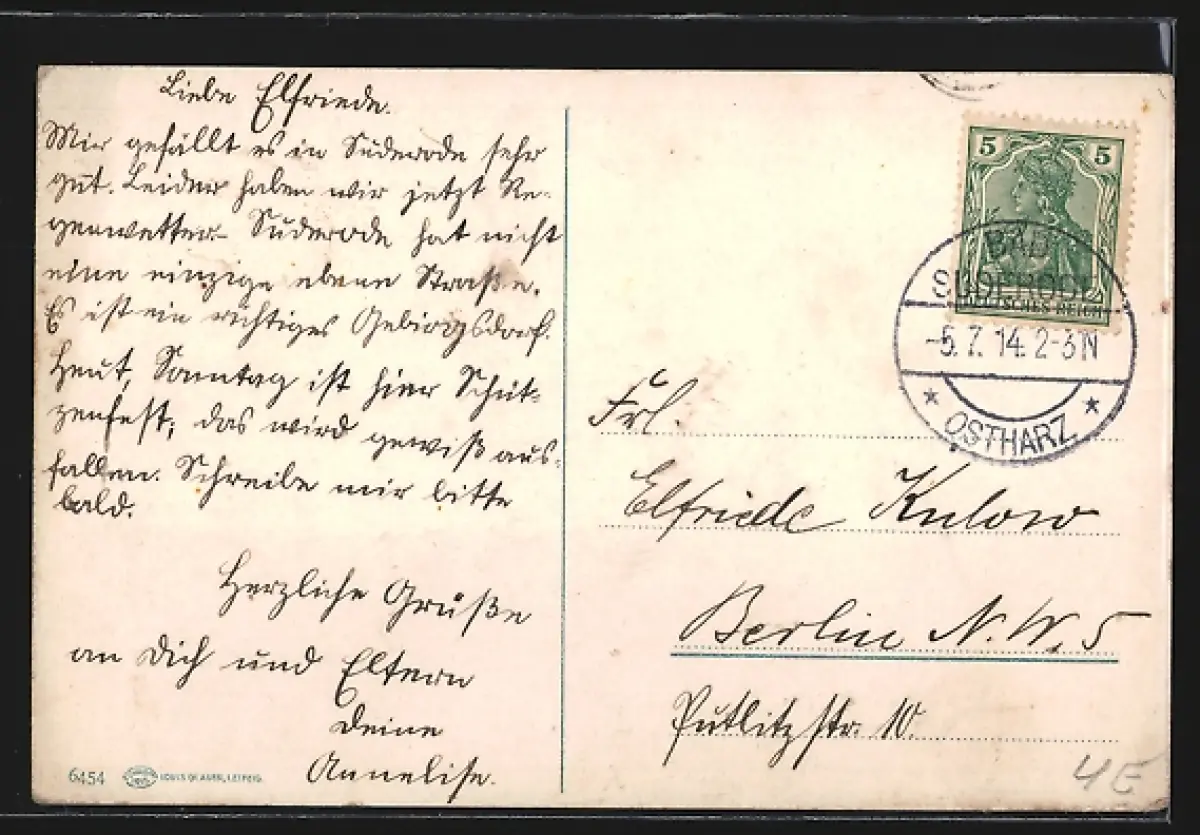 Liebe Elfriede.
Mir gefällt es in Süderode sehr
gut. Leider haben wir jetzt Re-
genwetter. Süderode hat nicht
eine einzige ebene Straße.
Es ist ein richtiges Gebirgsdorf.
Heut, Sonntag ist hier Schüt-
zenfest; das wird gewiß aus-
fallen. Schreibe mir bitte
bald.
Herzliche Grüße
an Dich und Eltern
Deine
Annelise.
6454 LOUIS GLASER, LEIPZIG.
5 5
DEUTSCHES REICH
BAD
SUDERODE
-5.7.14.2-3N
* OSTHARZ *
Frl.
Elfriede Kulow
Berlin N.W. 5
Putlitzstr. 10.
4E